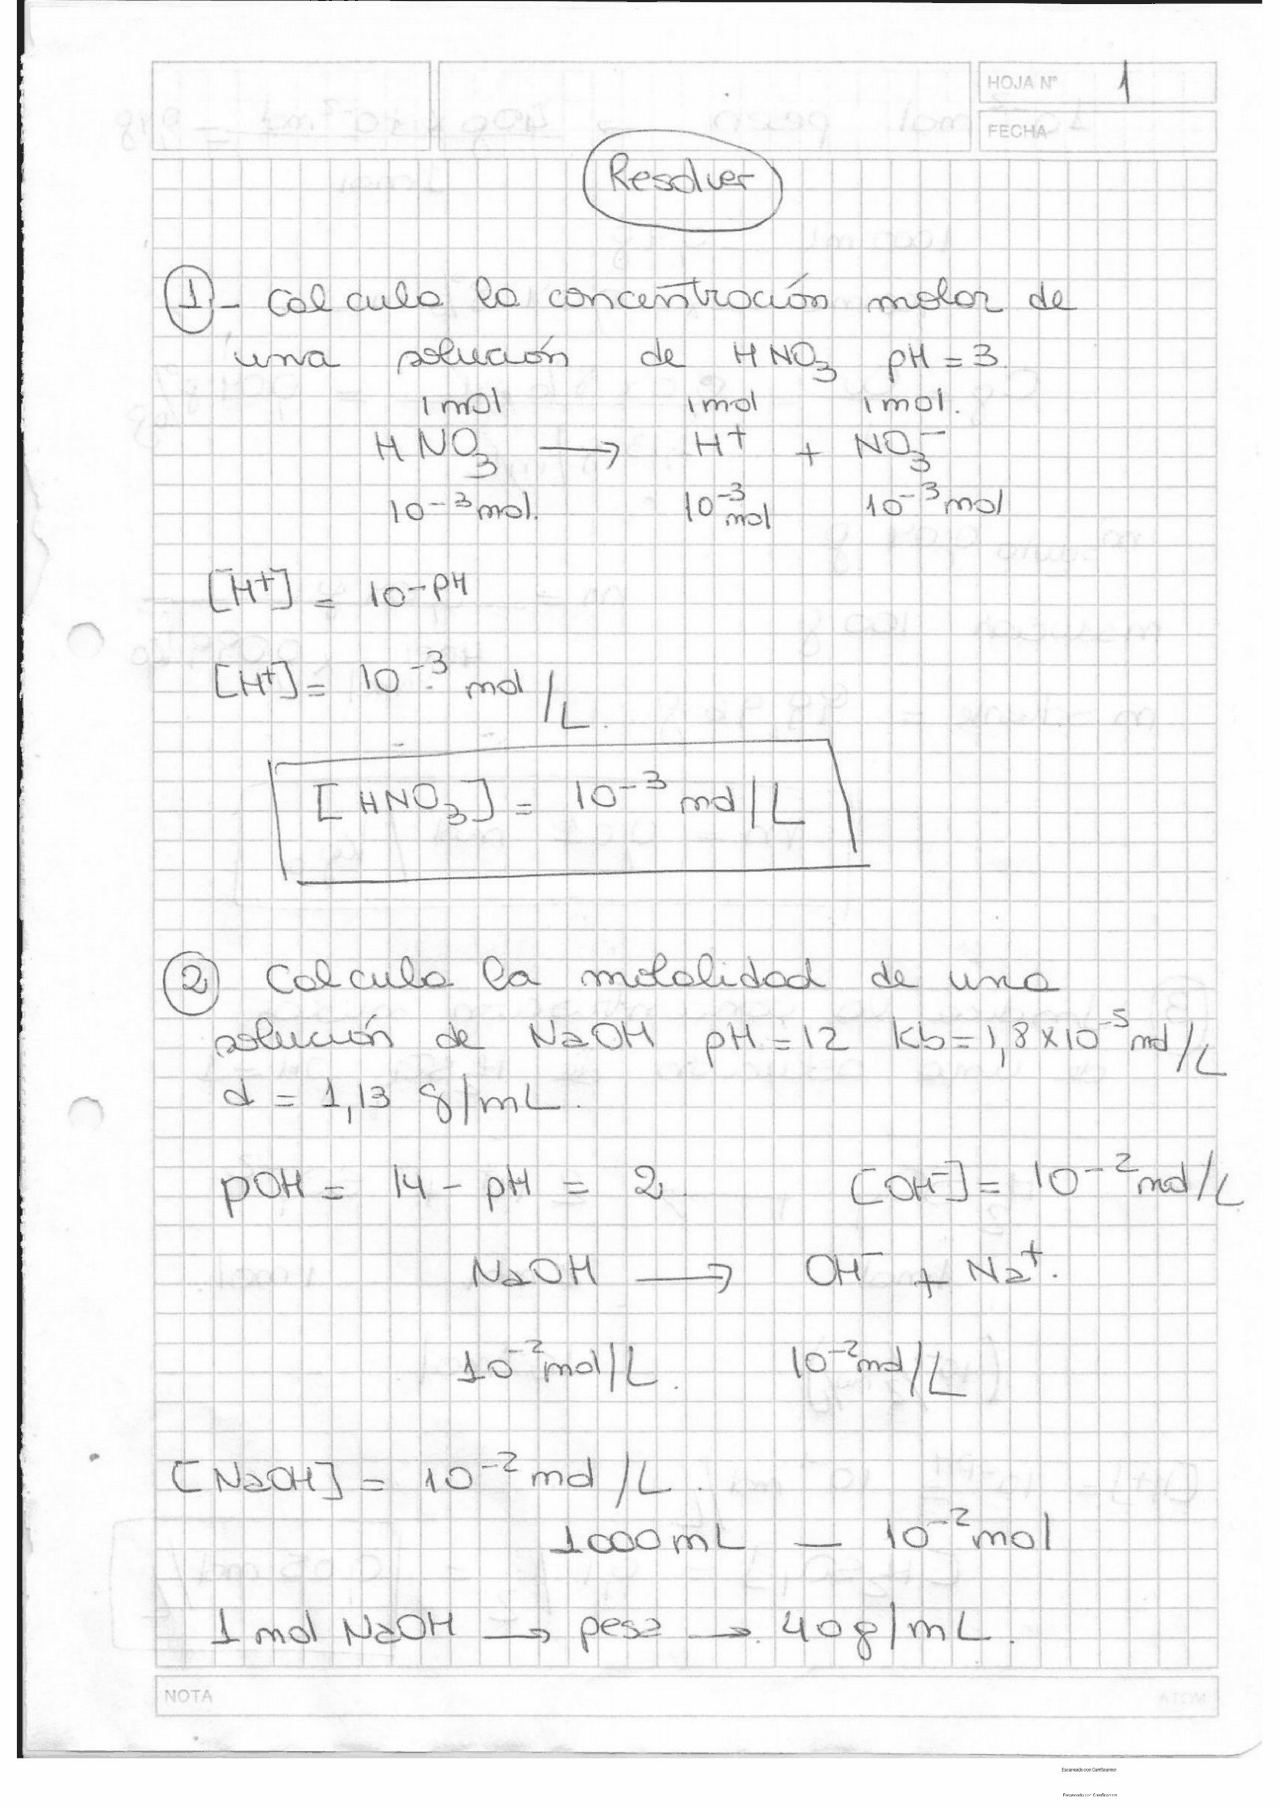 HOJA Nº 1
FECHA
Resolver
1- Calcula la concentración molar de
una solución de HNO3 pH = 3.
1 mol 1 mol 1 mol.
HNO3 → H+ + NO3-
10-3 mol. 10-3 mol 10-3 mol
[H+] = 10-pH
[H+] = 10-3 mol/L.
[HNO3] = 10-3 mol/L
2 Calcula la molalidad de una
solución de NaOH pH = 12 Kb = 1,8 x 10-5 mol/L
d = 1,13 g/mL.
pOH = 14 - pH = 2. [OH-] = 10-2 mol/L
NaOH → OH- + Na+.
10-2 mol/L. 10-2 mol/L
[NaOH] = 10-2 mol/L.
1000 mL — 10-2 mol
1 mol NaOH → pesa → 40 g/mL.
NOTA
Escaneado con CamScanner
Escaneado con CamScanner